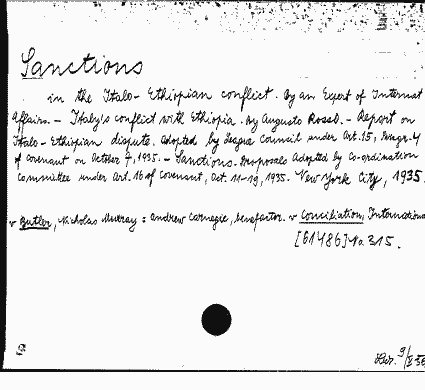 Sanctions
in the Italo-Ethiopian conflict. By an Expert of Internat
Affairs. - Italy's conflict with Ethiopia. By Augusto Rosso. - Report on
Italo-Ethiopian dispute. Adopted by League Council under Art. 15, Paragr. 4
of covenant on October 7, 1935. - Sanctions. Proposals adopted by Co-ordination
Committee under Art. 16 of Covenant, Oct. 11-19, 1935. New York City, 1935.
v Butler, Nicholas Murray: Andrew Carnegie, benefactor. v Conciliation, Internationa
[61486] No 315.